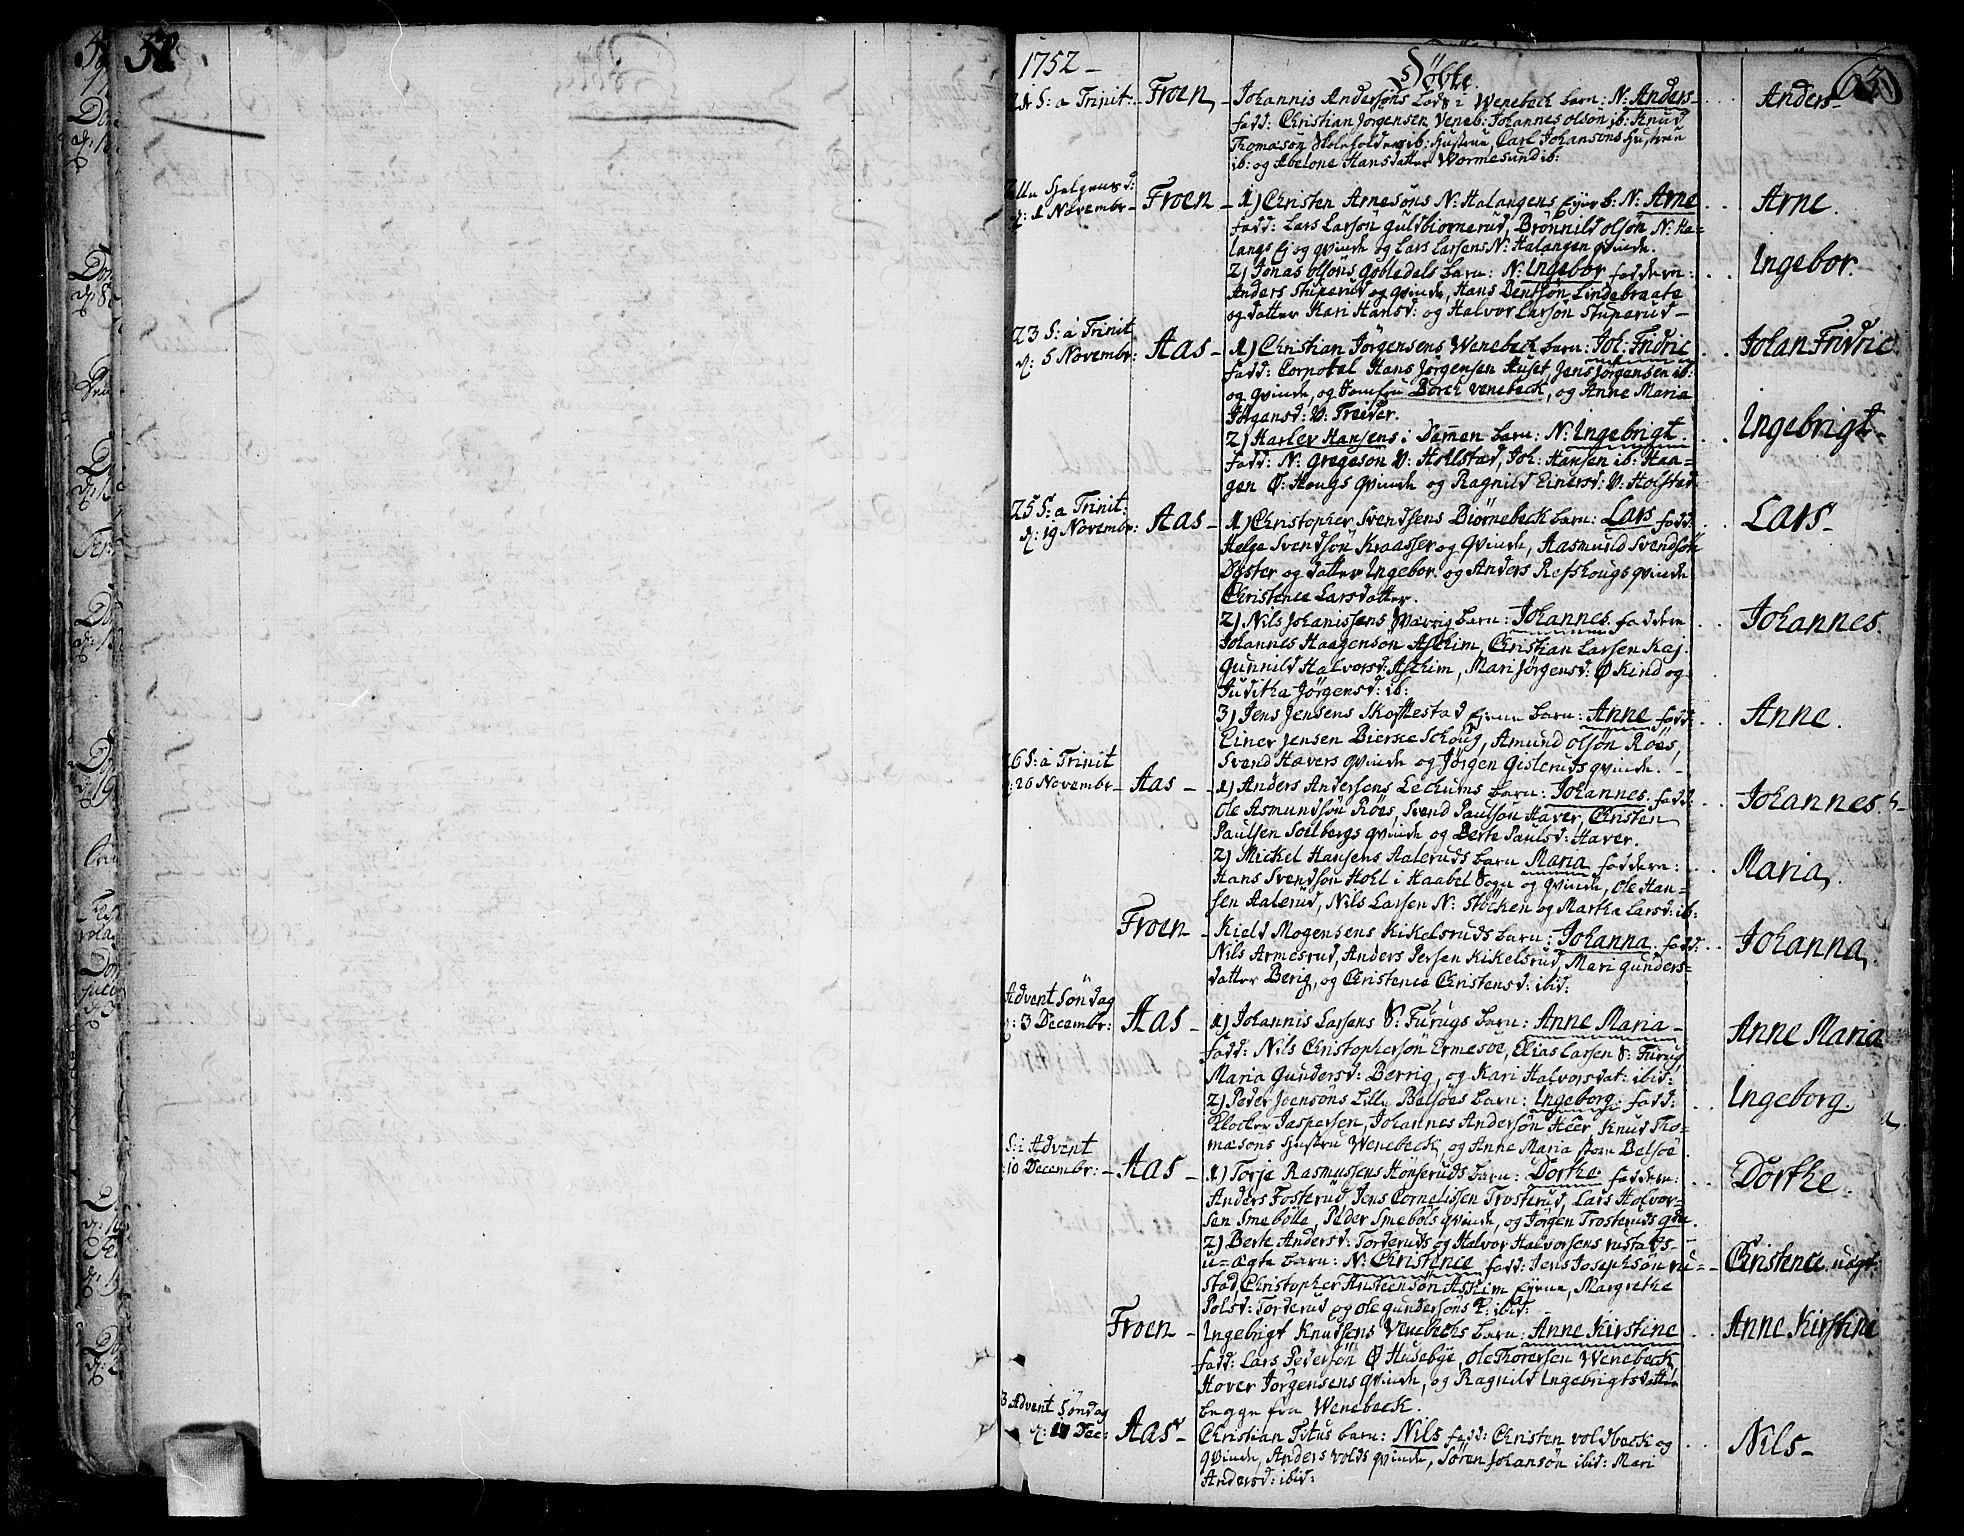 52
1752 -
Döbte
63
21 S: a Trinit: - Froen - Johannis Andersöns Lodz i Wenebeck barn: N: Anders - Anders -
fadd: Christian Jörgensen Veneb: Johannes olsön ib: Knud
Thomasön Skoleholders ib: Hustrue, Carl Johansöns Hustrue
ib: og Abelone Hansdatter Wormesund ib:
Alle Helgens d:
d: 1 Novembr - Froen - 1) Christen Arnesöns N: Halangens Eyer b: N: Arne Arne.
fadd: Lars Larsön Guldbiornerud, Brönnild olsön N: Ha=
langs Ej og qvinde og Lars Larsens N: Halangen qvinde.
2) Jonas olsöns Gobledals barn: N: Ingebor faddern: Ingebor.
Anders Stuperud og qvinde, Hans Bentsön Lindebraate
og datter Kari Hansd: og Halvor Larsön Stuperud -
23 S: a Trinit
d: 5 Novembr: Aas - 1) Christian Jörgensens Wenebeck barn: Joh: Fridric Johan Fridric
fadd: Corporal Hans Jörgensen Huset, Jens Jörgensen ib:
og qvinde, og Jomfru Borch venebeck, og Anne Maria
Jörgensd: V: Treider.
2) Harlev Hansens i Dammen barn: N: Ingebrigt. Ingebrigt -
fadd: N: Gregeson V: Hollstad, Joh: Hansen ib: Haa=
gen Ø: Hougs qvinde og Ragnild Einersd: V: Holstad
25 S: a Trinit:
d: 19 Novembr: Aas - 1) Christopher Svendsens Biörnebeck barn: Lars fadd: Lars -
Helge Svendsön Kraasser og qvinde, Aasmund Svendsön
Dyster og datter Ingebor. og Anders Refshougs qvinde
Christence Larsdatter.
2) Nils Johanissens Wærrig barn: Johannes. faddern Johannes.
Johannes Haagensön Askim, Christian Larsen Kaj.
Gunnild Halvorsd: Askim, Mari Jörgensd: Ø Kind og
Juditha Jörgensd: ib:
3) Jens Jensens Skofftestad Eyeres barn: Anne fadd: Anne.
Einer Jensen Bierke Schoug, Amund olsön Röes,
Svend Havers qvinde og Jörgen Gislerudsqvinde.
26 S: a Trinit
d: 26 Novembr - Aas - 1) Anders Andersens Lechums barn: Johannes. fadd: Johannes.
Ole Asmundsön Röes, Svend Paulsön Haver, Christen
Paulsen Sollbergs qvinde og Berte Paulsd: Haver.
2) Mickel Hansens Aaleruds barn Maria faddern: Maria.
Hans Svendsön Holt i Haabel Sogn og qvinde, Ole Han=
sen Aalerud, Nils Larsen N: Stöcken og Martha Larsd: ib:
Froen - Kield Mogensens Kikelsruds barn: Johanna. fadd: Johanna.
Nils Armesrud, Anders Persen Kikelsrud, Mari Gunders=
datter Berig, og Christence Christensd: ibid:
Advent Söndag
d: 3 Decembr: Aas - 1) Johannis Larsens S: Furugs barn: Anne Maria - Anne Maria
fadd: Nils Christophersön Ermesoe, Elias Larsen S: Furug
Maria Gundersd: Berrig, og Kari Halvorsdat: ibid:
2) Peder Joensöns Lille Belsöes barn: Ingeborg. fadd: Ingeborg.
Klocker Jaspersen, Johannes Andersön Heer Knud Tho=
mæsöns Hustru Wenebeck, og Anne Maria store Belsöe
S: i Advent
10 Decembr: - Aas - 1) Torje Rasmusens Hönseruds barn: Dorthe. faddern: Dorthe.
Anders Fosterud, Jens Cornelissen Trosterud, Lars Halvor=
sen Smebölle, Peder Smeböls qvinde, og Jörgen Trosteruds qde
2) Berte Andersd: Torderuds og Halvor Halvorsens rustads=
u=ægte barn: N: Christince fadd: Jens Josephsön ru= Christence. uægt:
stad, Christopher Anstensön Askim Eyeren, Margrethe
Polsd: Torderud og ole gundersöns Q: ibid:
Froen - Ingebrigt Knudsens Venebechs barn: Anne Kirstine Anne Kirstine
fadd: Lars Pedersön Ø Husebye, Ole Thoresen Wenebeck
Hover Jörgensens qvinde, og Ragnild Ingebrigtsdatter
begge fra Wenebeck.
3 Advent Söndag
d: 17 Dec: Aas - Christian Titus barn: Nils fadd: Christen voldbeck og Nils -
qvinde, Anders volds qvinde, Sören Johansön ibid: Mari
Andersd: ibid: